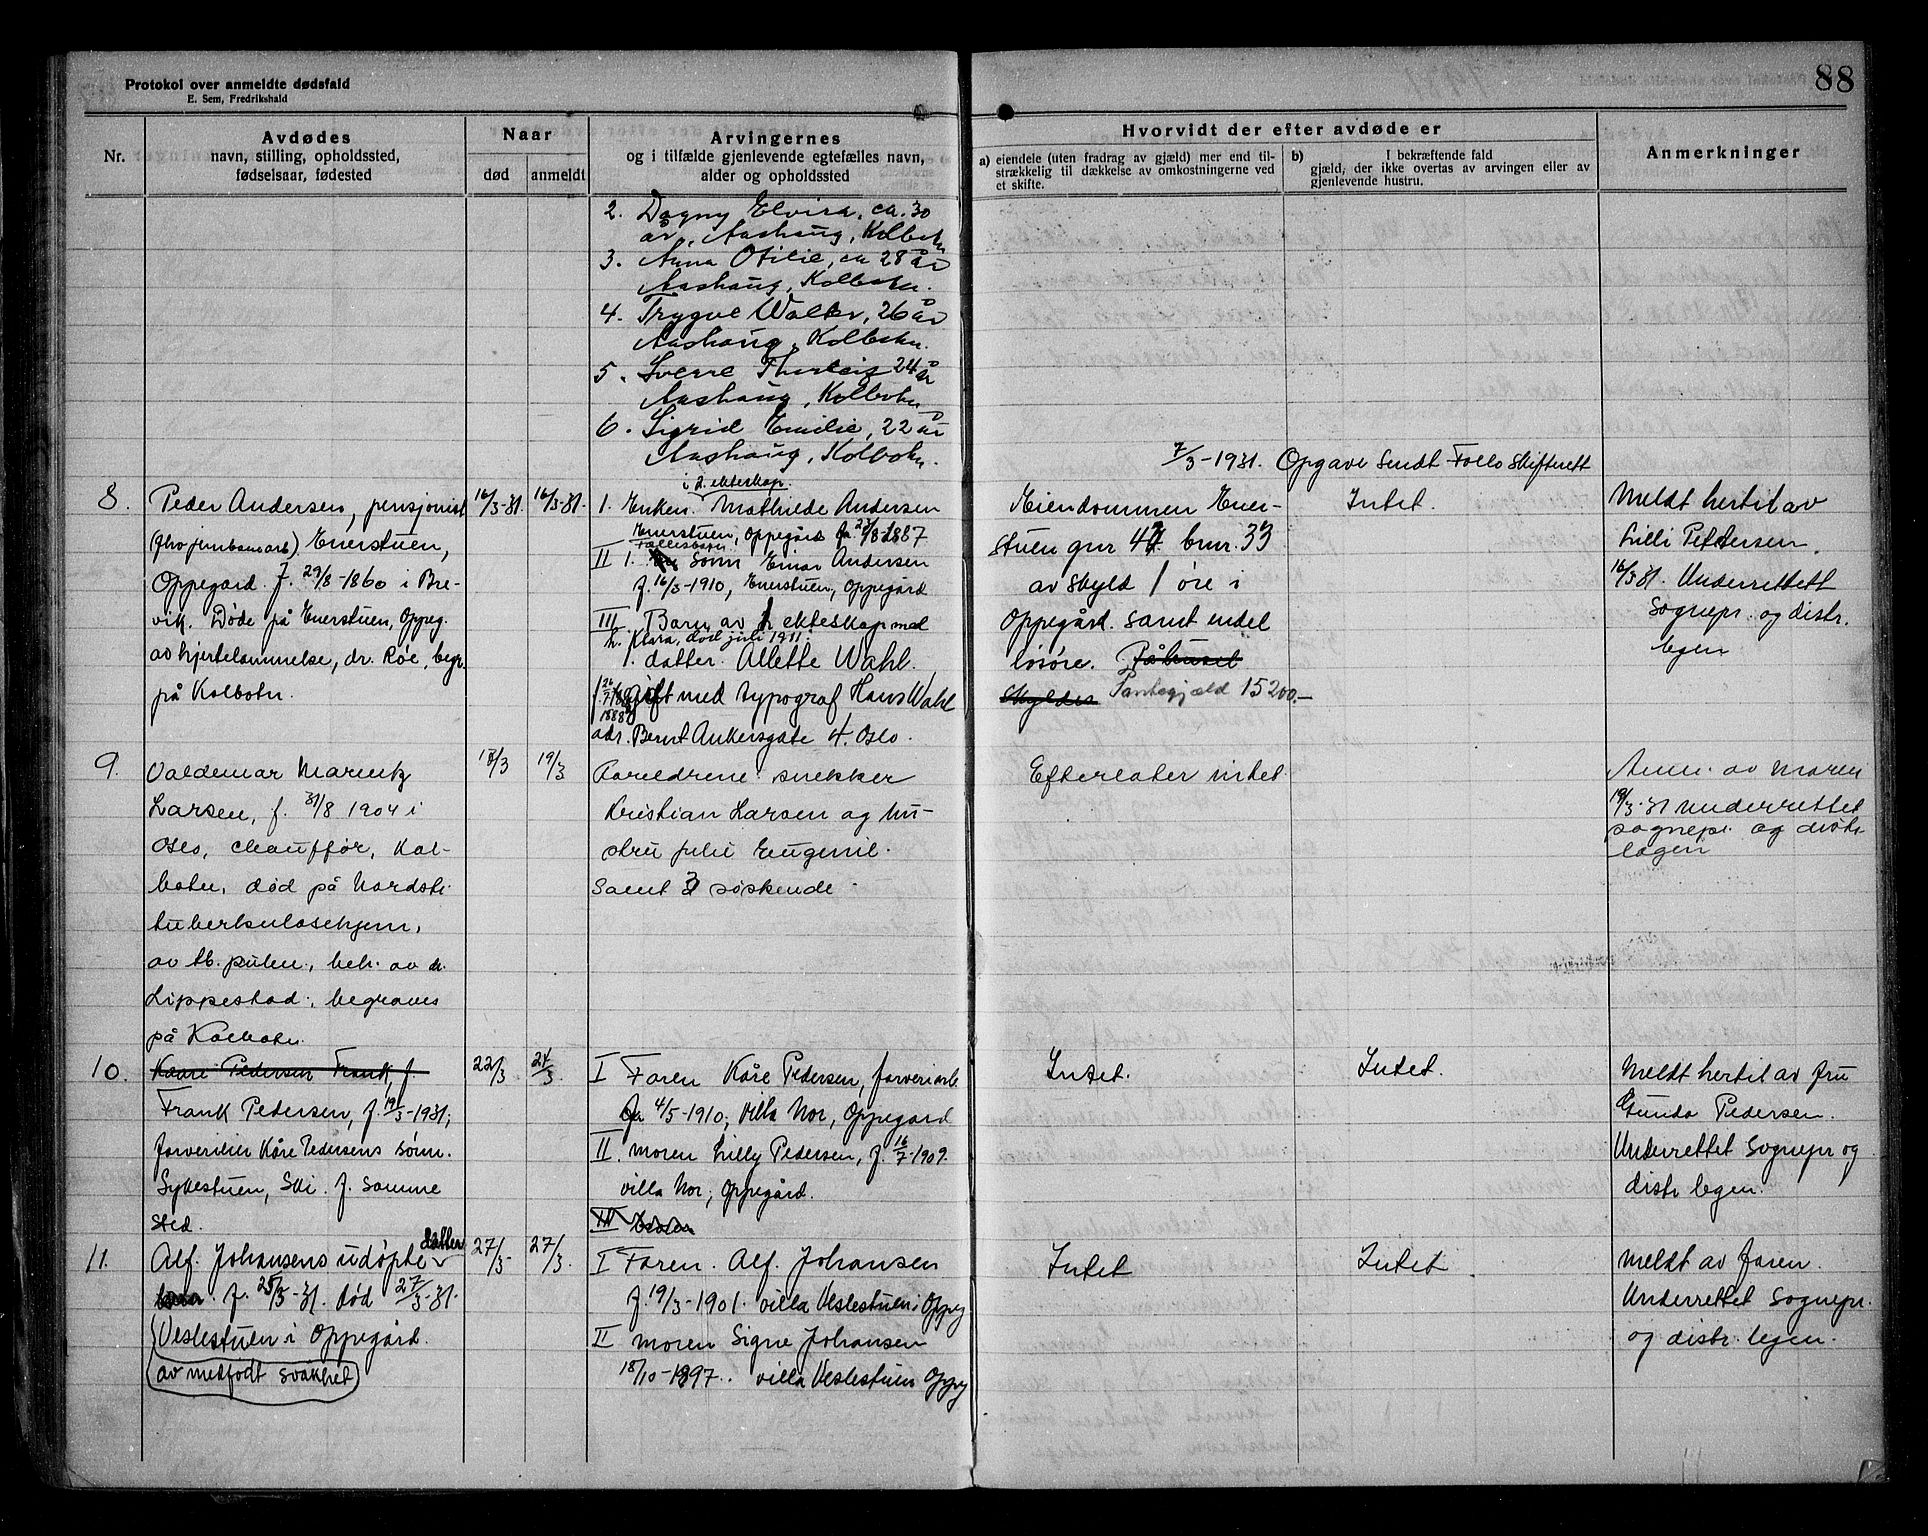 Protokol over anmeldte dødsfald
E. Sem, Fredrikshald
88
Nr.
Avdødes
navn, stilling, opholdssted,
fødselsaar, fødested
Naar
død
anmeldt
Arvingernes
og i tilfælde gjenlevende egtefælles navn,
alder og opholdssted
Hvorvidt der efter avdøde er
a) eiendele (uten fradrag av gjæld) mer end til-
strækkelig til dækkelse av omkostningerne ved
et skifte.
b) I bekræftende fald
gjæld, der ikke overtas av arvingen eller av
gjenlevende hustru.
Anmerkninger
2. Dagny Elvira, ca. 30
år, Aashaug, Kolbotn
3. Anna Otilie, ca 28 år
Aashaug, Kolbotn.
4. Trygve Walter, 26 år
Aashaug, Kolbotn.
5. Sverre Thorleif 24 år
Aashaug, Kolbotn
6. Sigrid Emilie, 22 år
Aashaug, Kolbotn.
7/3-1931. Opgave sendt Follo Skifterett
8.
Peder Andersen, pensjonist
(fhv jernbanearb). Enerstuen,
Oppegård. f. 29/8-1860 i Bre-
vik. Døde på Enerstuen, Oppeg.
av hjertelammelse, dr. Røe, begr.
på Kolbotn.
16/3-31.
16/3-31.
i 2. ekteskap.
1. Enken. Mathilde Andersen
Enerstuen, Oppegård fa 23/3 1887
Fellesbarn:
II 1. Sønn Einar Andersen
f. 16/3-1910, Enerstuen, Oppegård
III Barn av 1 ekteskap med
h. Klara, død juli 1911:
1. datter. Allette Wahl.
gift med typograf Hans Wahl
adr. Bernt Ankersgate 4. Oslo.
Eiendommen Ener-
stuen gnr 42 bnr. 33
av skyld 1 øre i
Oppegård. samt endel
løsøre. På huset
skyldes Pantegjeld 15200.-
Intet.
Meldt hertil av
Lilli Pettersen.
16/3 31. Underrettet
Sognepr. og distr.
legen
9.
Valdemar Marentz
Larsen, f. 31/8 1904 i
Oslo, chauffør, Kol-
botn, død på Nordst.
tuberkulosehjem,
av tb. pulm., beh. av dr.
Lippestad, begraves
på Kolbotn.
18/3
19/3
Foreldrene: snekker
Kristian Larsen og hu-
stru Julie Eugenie.
samt 3 søskende.
Efterlater intet
Anm. av moren
19/3-31 Underrettet
sognepr. og distr.
legen
10.
Kaare Pedersen Frank, f.
Frank Pedersen, f. 19/3-1931;
farverilier Kåre Pedersens sønn.
Sykestuen, Ski. f. samme
sted.
22/3
24/3.
I Faren Kåre Pedersen, farveriarb.
fa 4/5-1910; villa Nor, Oppegård
II. moren Lilly Pedersen, f. 16/7-1909.
villa Nor, Oppegård.
III
Intet.
Intet.
Meldt hertil av fru
Gunda Pedersen.
Underrettet Sognepr og
distr legen.
11.
Alf. Johansens udøpte datter
f. 25/3-31. død 27/3-31.
Veslestuen i Oppegård.
av medfødt svakhet
27/3-
27/3.
I Faren. Alf. Johansen
f. 19/3-1901. villa Veslestuen i Oppeg
II moren Signe Johansen
18/10-1897.. villa Veslestuen Oppeg
Intet
Intet
Meldt av faren.
Underrettet Sognepr.
og distr. legen.